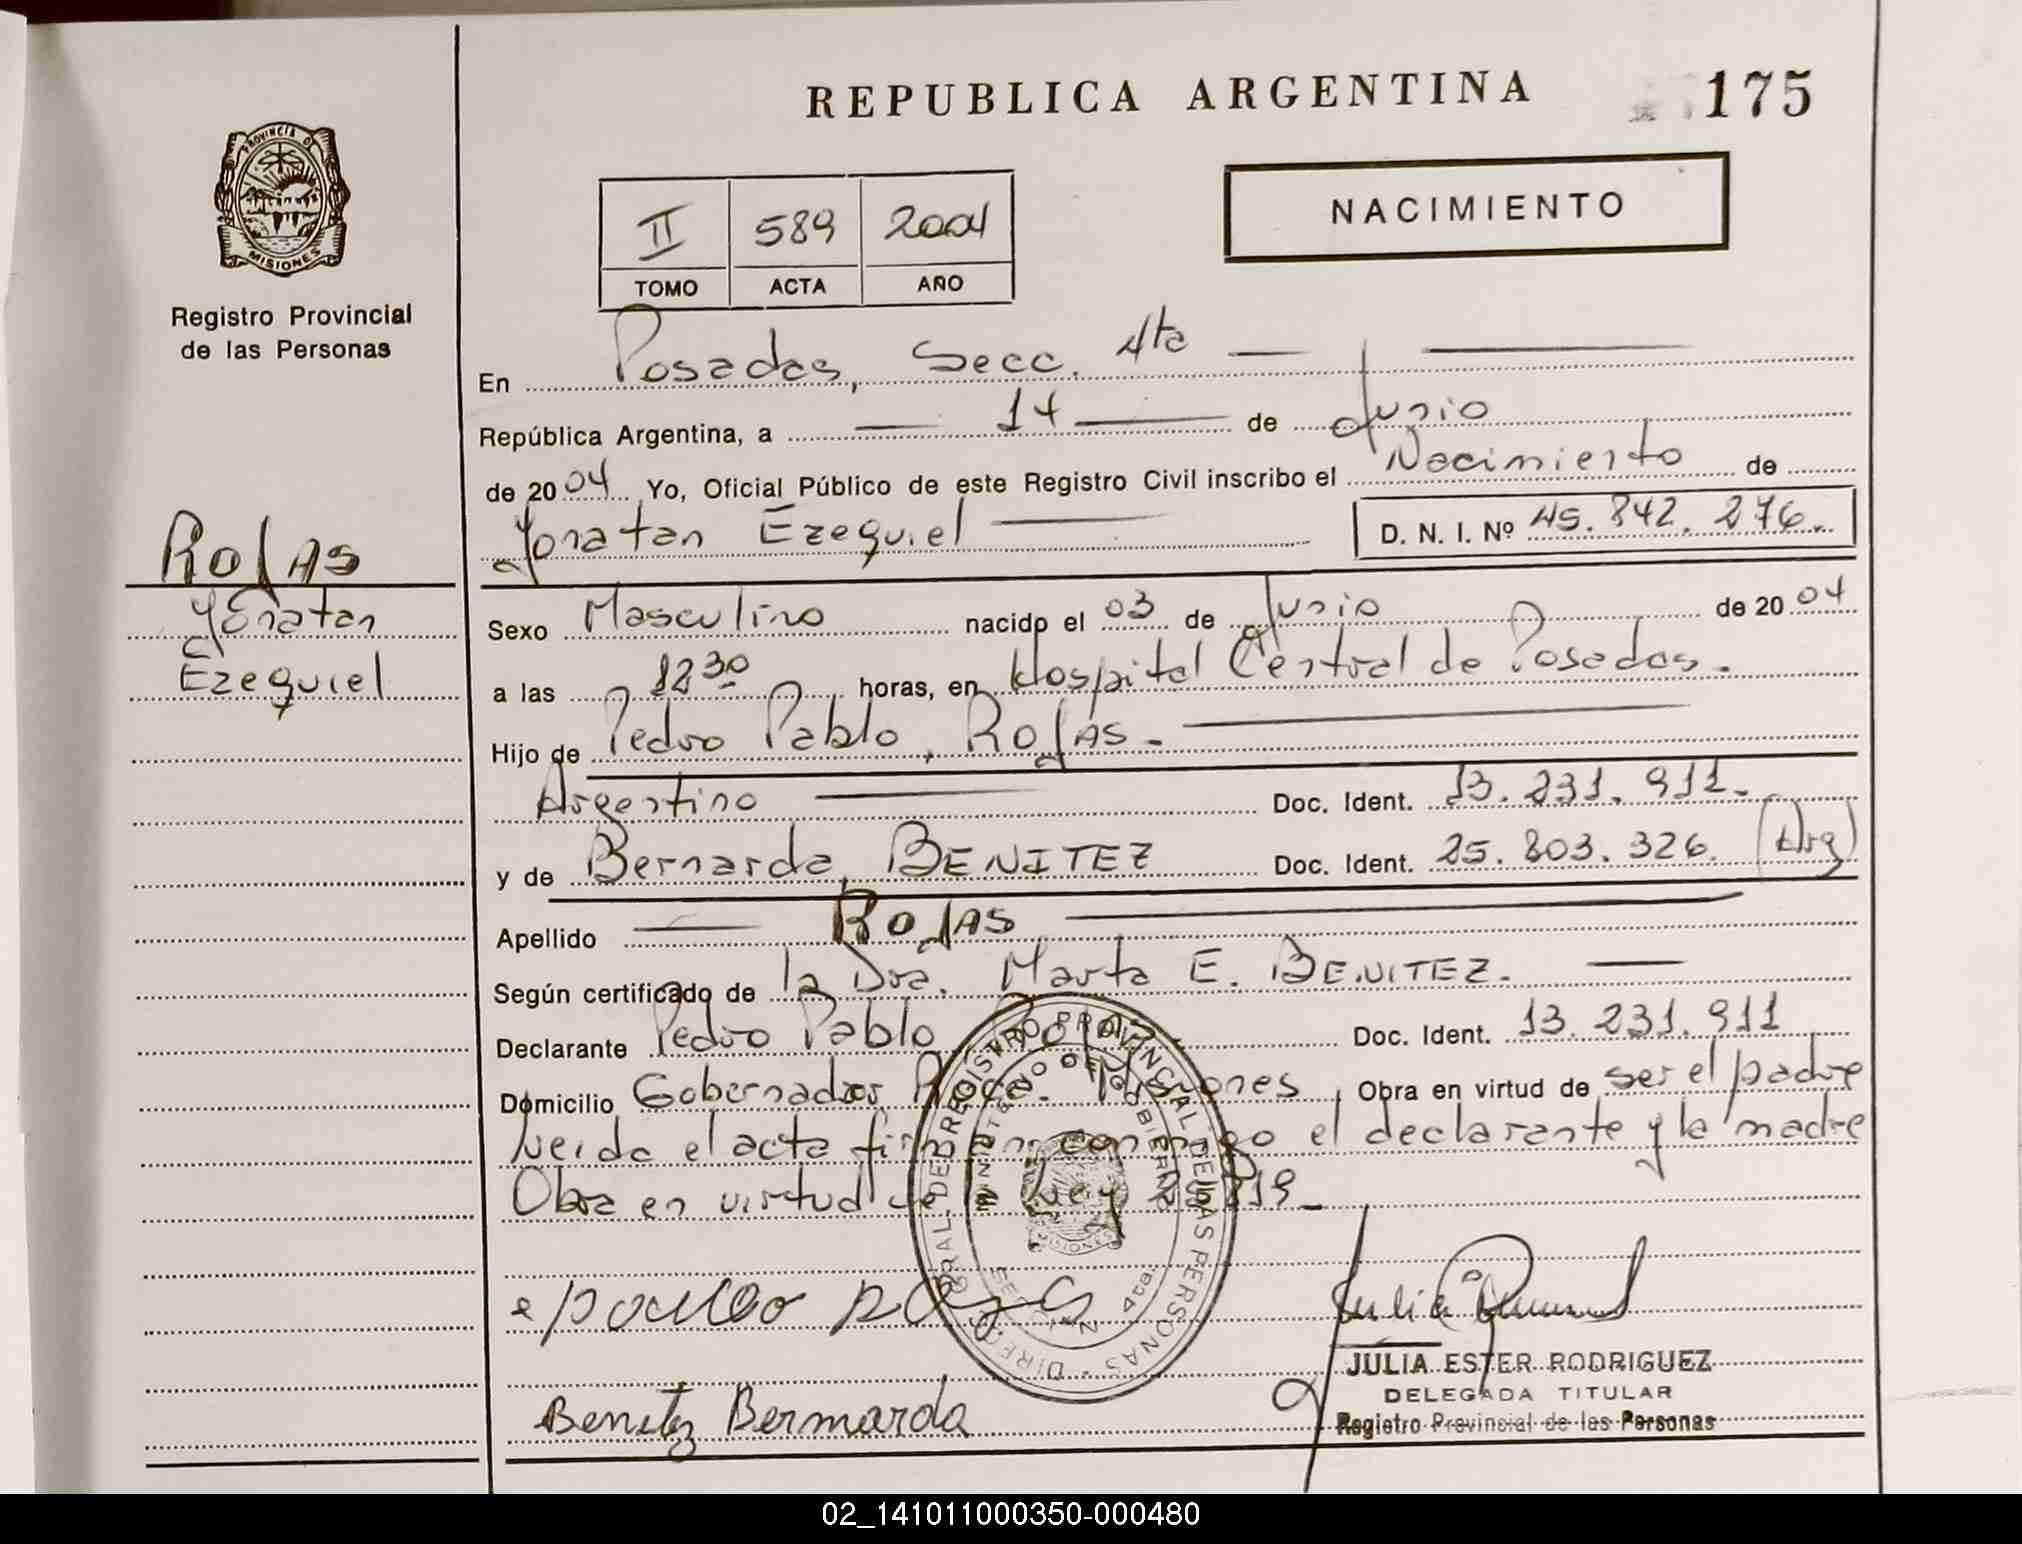 REPUBLICA ARGENTINA
175
PROVINCIA D
MISIONES
Registro Provincial
de las Personas
II 589 2004
TOMO ACTA AÑO
NACIMIENTO
En Posadas, Secc. 4ta
República Argentina, a 14 de Junio
de 2004 Yo, Oficial Público de este Registro Civil inscribo el Nacimiento de
Jonatan Ezequiel D. N. I. Nº 45.842.276
ROJAS
Jonatan
Ezequiel
Sexo Masculino nacido el 03 de Junio de 2004
a las 12 30 horas, en Hospital Central de Posadas.
Hijo de Pedro Pablo, ROJAS.
Argentino Doc. Ident. 13.231.911.
y de Bernarda, BENITEZ Doc. Ident. 25.803.326. (Arg)
Apellido ROJAS
Según certificado de la Dra. Marta E. BENITEZ.
Declarante Pedro Pablo Rojas Doc. Ident. 13.231.911
Domicilio Gobernador Roca. Misiones Obra en virtud de ser el padre
Leida el acta firman conmigo el declarante y la madre
Obra en virtud de la Ley
DIREC. GRAL. DE REGISTRO PROVINCIAL DE LAS PERSONAS
MINISTERIO DE GOBIERNO
MISIONES
SECCION 4ta.
Benitez Bernarda
JULIA ESTER RODRIGUEZ
DELEGADA TITULAR
Registro Provincial de las Personas
02_141011000350-000480